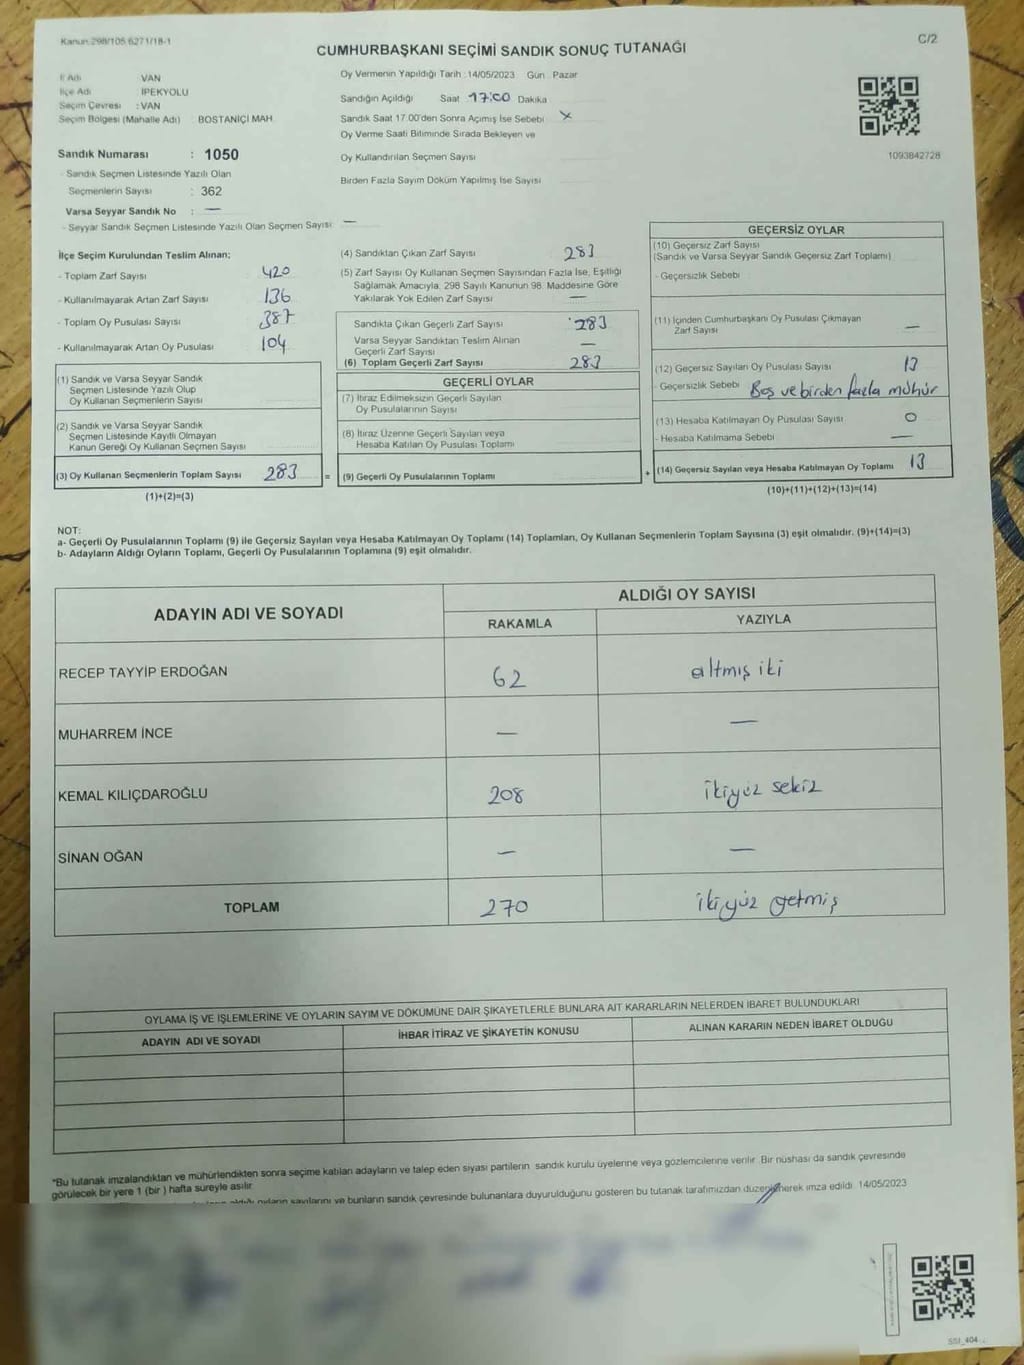 Kanun 298/105 6271/18-1
C/2
CUMHURBAŞKANI SEÇİMİ SANDIK SONUÇ TUTANAĞI
İl Adı VAN
İlçe Adı İPEKYOLU
Seçim Çevresi : VAN
Seçim Bölgesi (Mahalle Adı) : BOSTANİÇİ MAH.
Sandık Numarası : 1050
- Sandık Seçmen Listesinde Yazılı Olan
Seçmenlerin Sayısı : 362
Varsa Seyyar Sandık No : —
- Seyyar Sandık Seçmen Listesinde Yazılı Olan Seçmen Sayısı: —
Oy Vermenin Yapıldığı Tarih :14/05/2023 Gün : Pazar
Sandığın Açıldığı Saat 17:00 Dakika
Sandık Saat 17.00'den Sonra Açımış İse Sebebi x
Oy Verme Saati Bitiminde Sırada Bekleyen ve
Oy Kullandırılan Seçmen Sayısı
Birden Fazla Sayım Döküm Yapılmış İse Sayısı
1093842728
İlçe Seçim Kurulundan Teslim Alınan:
- Toplam Zarf Sayısı 420
- Kullanılmayarak Artan Zarf Sayısı 136
- Toplam Oy Pusulası Sayısı 387
- Kullanılmayarak Artan Oy Pusulası 104
(1) Sandık ve Varsa Seyyar Sandık
Seçmen Listesinde Yazılı Olup
Oy Kullanan Seçmenlerin Sayısı
(2) Sandık ve Varsa Seyyar Sandık
Seçmen Listesinde Kayıtlı Olmayan
Kanun Gereği Oy Kullanan Seçmen Sayısı
(3) Oy Kullanan Seçmenlerin Toplam Sayısı 283 =
(1)+(2)=(3)
(4) Sandıktan Çıkan Zarf Sayısı 283
(5) Zarf Sayısı Oy Kullanan Seçmen Sayısından Fazla İse, Eşitliği
Sağlamak Amacıyla; 298 Sayılı Kanunun 98. Maddesine Göre
Yakılarak Yok Edilen Zarf Sayısı —
Sandıkta Çıkan Geçerli Zarf Sayısı 283
Varsa Seyyar Sandıktan Teslim Alınan
Geçerli Zarf Sayısı —
(6) Toplam Geçerli Zarf Sayısı 283
GEÇERLİ OYLAR
(7) İtiraz Edilmeksizin Geçerli Sayılan
Oy Pusulalarının Sayısı
(8) İtiraz Üzerine Geçerli Sayılan veya
Hesaba Katılan Oy Pusulası Toplamı
(9) Geçerli Oy Pusulalarının Toplamı +
GEÇERSİZ OYLAR
(10) Geçersiz Zarf Sayısı
(Sandık ve Varsa Seyyar Sandık Geçersiz Zarf Toplamı)
- Geçersizlik Sebebi
(11) İçinden Cumhurbaşkanı Oy Pusulası Çıkmayan
Zarf Sayısı —
(12) Geçersiz Sayılan Oy Pusulası Sayısı 13
- Geçersizlik Sebebi Boş ve birden fazla mühür
(13) Hesaba Katılmayan Oy Pusulası Sayısı 0
- Hesaba Katılmama Sebebi —
(14) Geçersiz Sayılan veya Hesaba Katılmayan Oy Toplamı 13
(10)+(11)+(12)+(13)=(14)
NOT:
a- Geçerli Oy Pusulalarının Toplamı (9) ile Geçersiz Sayılan veya Hesaba Katılmayan Oy Toplamı (14) Toplamları, Oy Kullanan Seçmenlerin Toplam Sayısına (3) eşit olmalıdır. (9)+(14)=(3)
b- Adayların Aldığı Oyların Toplamı, Geçerli Oy Pusulalarının Toplamına (9) eşit olmalıdır.
ADAYIN ADI VE SOYADI ALDIĞI OY SAYISI
RAKAMLA YAZIYLA
RECEP TAYYİP ERDOĞAN 62 altmış iki
MUHARREM İNCE — —
KEMAL KILIÇDAROĞLU 208 ikiyüz sekiz
SİNAN OĞAN — —
TOPLAM 270 ikiyüz yetmiş
OYLAMA İŞ VE İŞLEMLERİNE VE OYLARIN SAYIM VE DÖKÜMÜNE DAİR ŞİKAYETLERLE BUNLARA AİT KARARLARIN NELERDEN İBARET BULUNDUKLARI
ADAYIN ADI VE SOYADI İHBAR İTİRAZ VE ŞİKAYETİN KONUSU ALINAN KARARIN NEDEN İBARET OLDUĞU
*Bu tutanak imzalandıktan ve mühürlendikten sonra seçime katılan adayların ve talep eden siyasi partilerin sandık kurulu üyelerine veya gözlemcilerine verilir. Bir nüshası da sandık çevresinde
görülecek bir yere 1 (bir ) hafta süreyle asılır.
oyların sayılarını ve bunların sandık çevresinde bulunanlara duyurulduğunu gösteren bu tutanak tarafımızdan düzenlenerek imza edildi. 14/05/2023
SSI_404